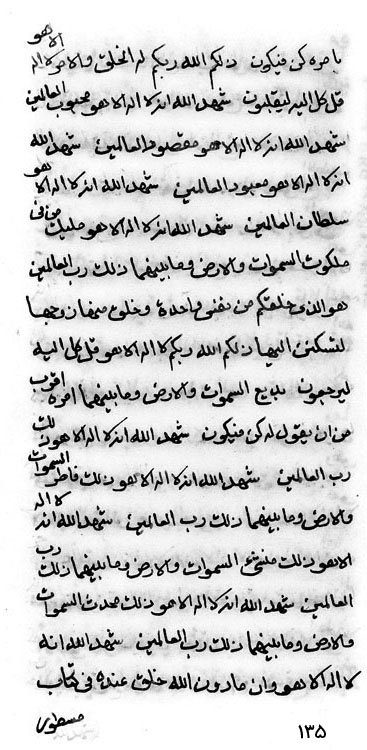 بامره كن فيكون ذلكم الله ربكم له الخلق والامر لا اله الا هو
قل كل اليه ليقلبون شهد الله انه لا اله الا هو محبوب العالمين
شهد الله انه لا اله الا هو مقصود العالمين شهد الله
انه لا اله الا هو معبود العالمين شهد الله انه لا اله الا هو
سلطان العالمين شهد الله انه لا اله الا هو مليك من في
ملكوت السموات والارض وما بينهما ذلك رب العالمين
هو الذي خلقكم من نفس واحدة وخلق منها زوجها
لتسكنن اليها ذلكم الله ربكم لا اله الا هو قل كل اليه
ليرجعون بديع السموات والارض وما بينهما امره اقرب
من ان يقول له كن فيكون شهد الله انه لا اله الا هو ذلك
رب العالمين شهد الله انه لا اله الا هو ذلك فاطر السموات
والارض وما بينهما ذلك رب العالمين شهد الله انه لا اله
الا هو ذلك منشئ السموات والارض وما بينهما ذلك رب
العالمين شهد الله انه لا اله الا هو ذلك محدث السموات
والارض وما بينهما ذلك رب العالمين شهد الله انه
لا اله الا هو وان ما دون الله خلق عنده في كتاب
مسطور
١٣۵